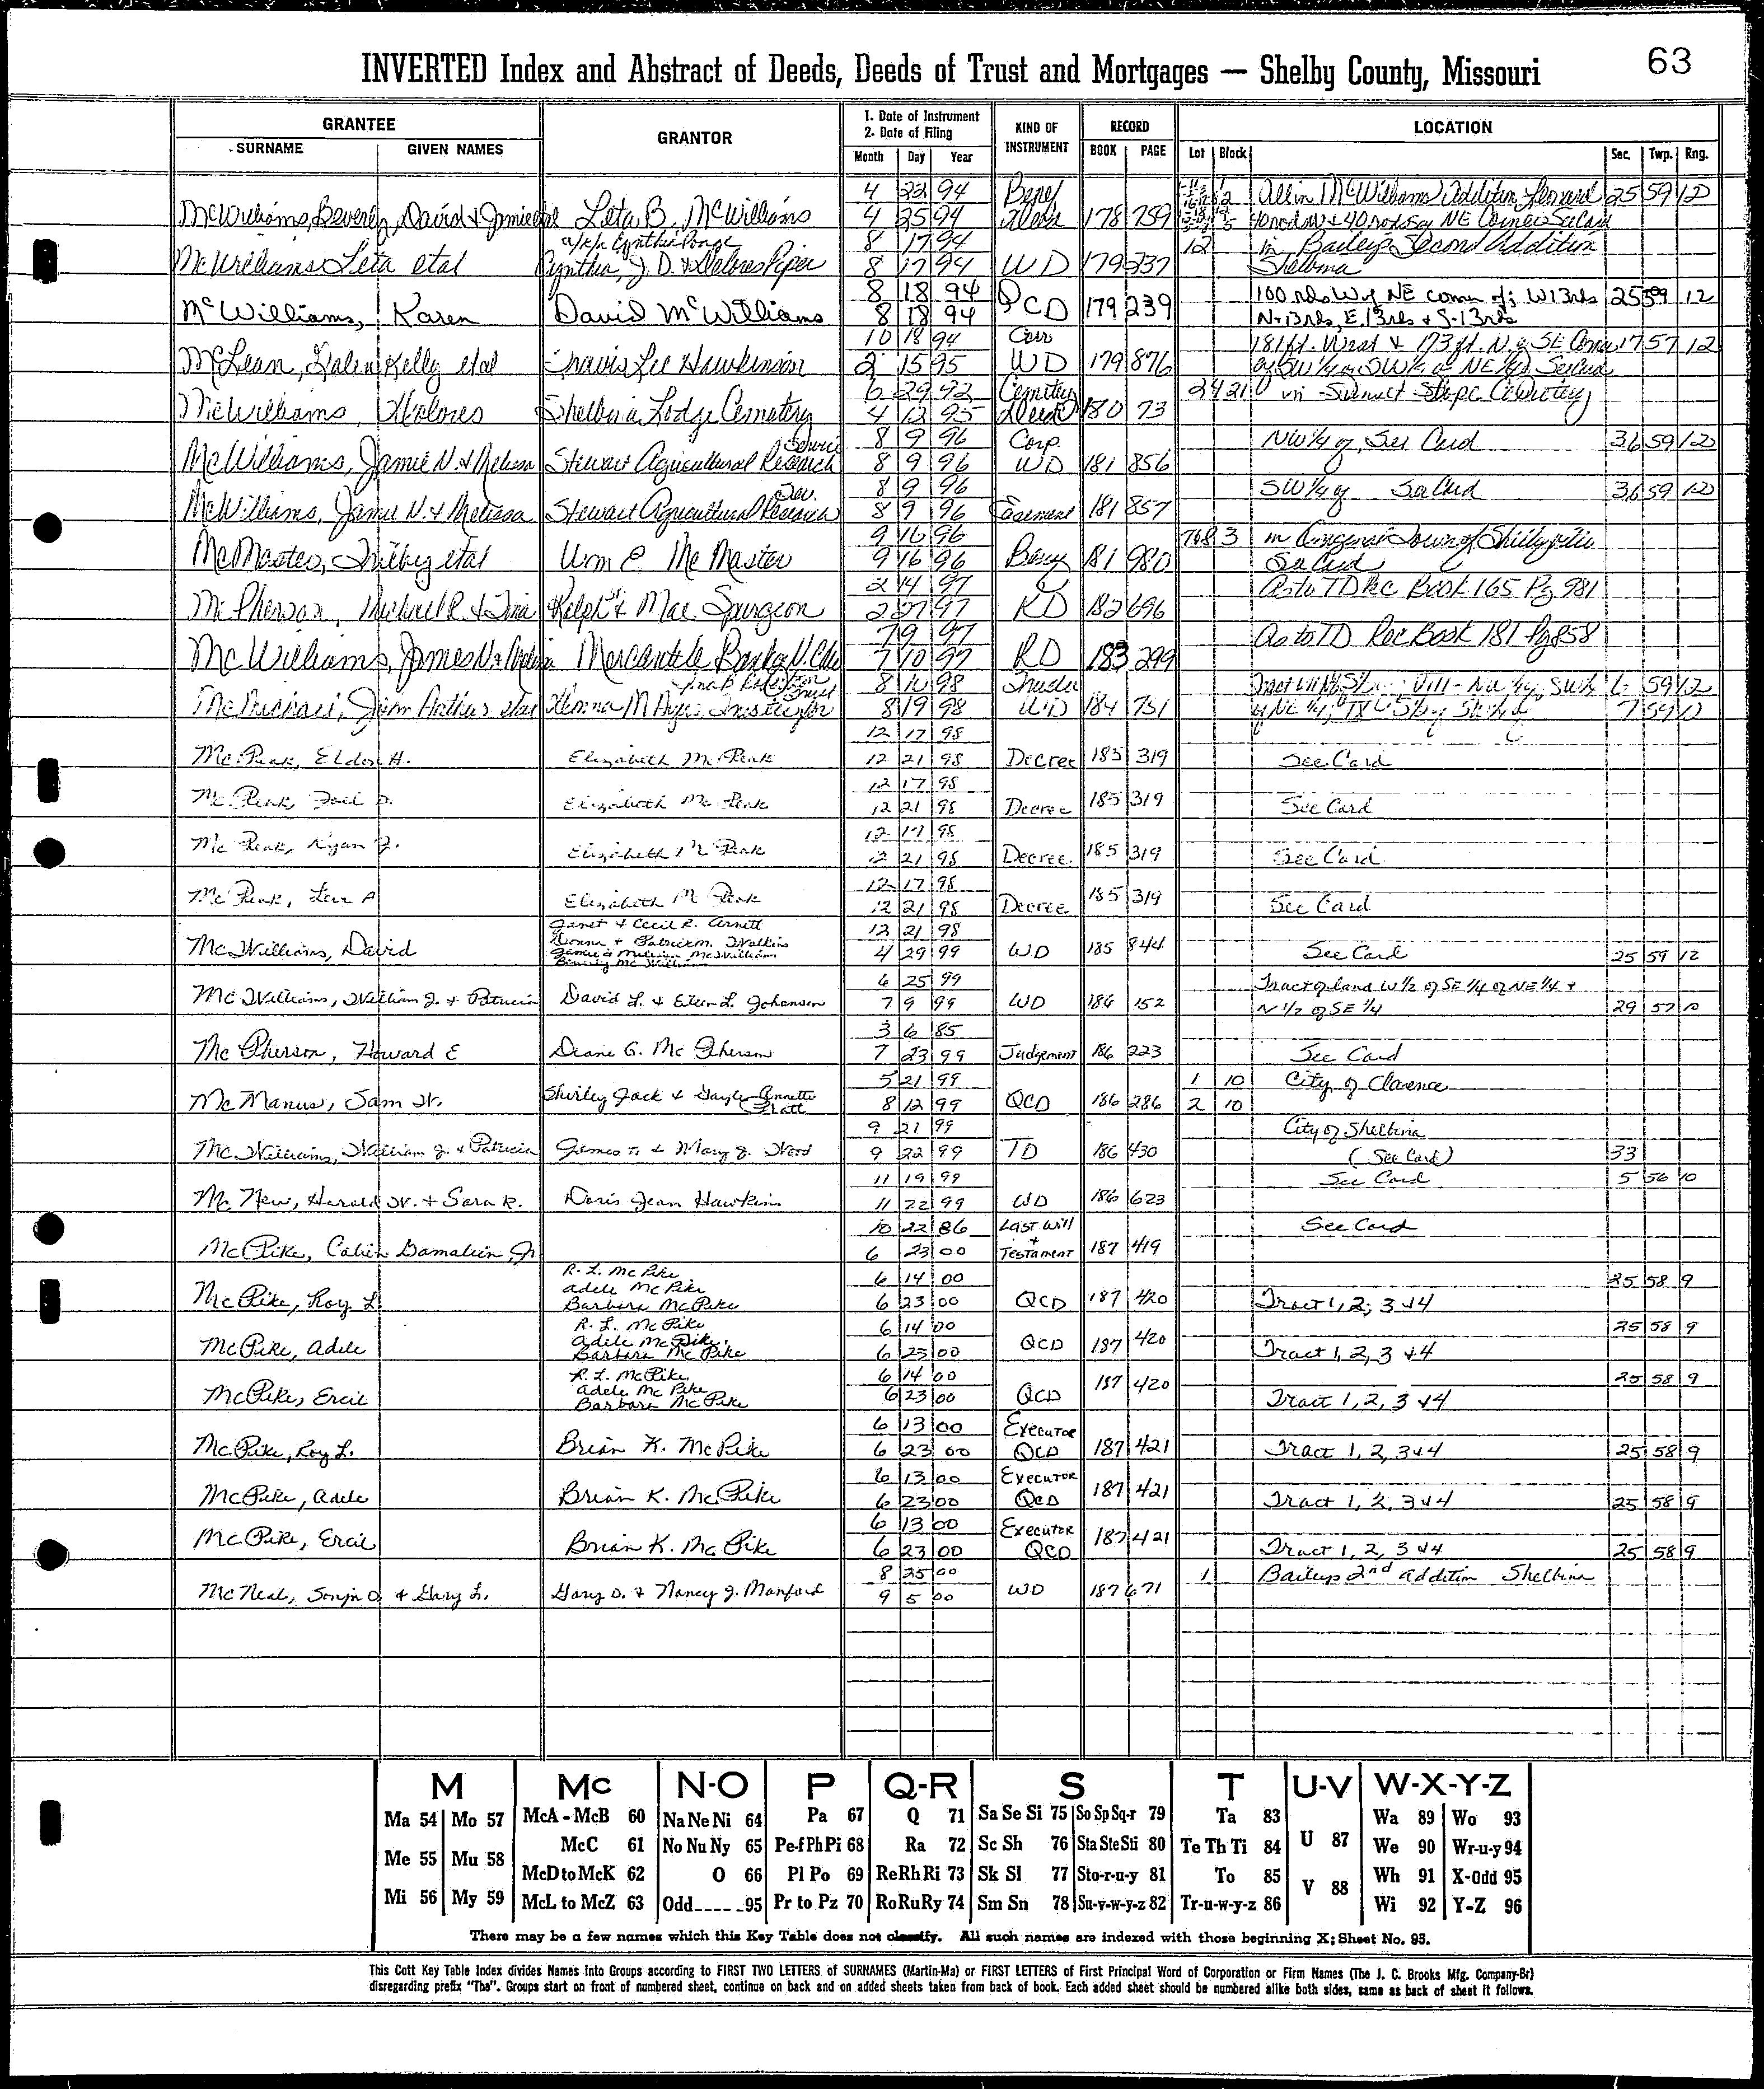 63
INVERTED Index and Abstract of Deeds, Deeds of Trust and Mortgages — Shelby County, Missouri
GRANTEE
SURNAME GIVEN NAMES
GRANTOR
1. Date of Instrument
2. Date of Filing
Month Day Year
KIND OF INSTRUMENT
RECORD
BOOK PAGE
LOCATION
Lot Block Sec. Twp. Rng.
4 22 94 Benef 25 59 12
McWilliams, Beverly, David & Jamie etal Leta B. McWilliams 4 25 94 Deed 178 759
a/k/a Cynthia Ponge 8 17 94 12 in Baileys Second Addition
McWilliams Leta etal Cynthia, J. D. & Delores Piper 8 17 94 WD 179 237 Shelbina
8 18 94 100 rds W of NE corner of; W 13 rds 25 59 12
McWilliams, Karen David McWilliams 8 18 94 QCD 179 239 N-13 rds, E. 13 rds & S-13 rds
10 18 94 Corr 181 ft. West & 173 ft. N of SE Corner 17 57 12
McLean, Galen Kelly etal Travis Lee Hawkinson 2 15 95 WD 179 876 of SW 1/4 of SW 1/4 of NE 1/4 See Card
6 29 92 Cemetery 24 210 in Sunset Slope Cemetery
McWilliams Delores Shelbina Lodge Cemetery 4 12 95 Deed 180 73
Service 8 9 96 Corp. NW 1/4 of, See Card 36 59 12
McWilliams, Jamie N. & Melissa Stewart Agricultural Research 8 9 96 WD 181 856
Ser. 8 9 96 SW 1/4 of See Card 36 59 12
McWilliams, Jamie N. & Melissa Stewart Agricultural Research 8 9 96 Easement 181 857
9 16 96 7&8 3 in Original Town of Shelbyville
McMaster, Trilby etal Wm E McMaster 9 16 96 181 980 See Card
2 14 97 As to TD Rec Book 165 Pg 981
McPherson, Michael R. & Tina Ralph & Mae Spurgeon 2 27 97 RD 182 696
7 9 97 As to TD Rec Book 181 Pg 858
McWilliams, James N & Mercantile Bank 7 10 97 RD 183 299
8 10 98 Trustee 59 12
McMichael, John Arthur etal 8 19 98 WD 184 751 7 59 12
12 17 98
McPeak, Eldon H. Elizabeth McPeak 12 21 98 Decree 185 319 See Card
12 17 98
McPeak, D. Elizabeth McPeak 12 21 98 Decree 185 319 See Card
12 17 98
McPeak, Ryan J. Elizabeth McPeak 12 21 98 Decree 185 319 See Card
12 17 98
McPeak, A Elizabeth McPeak 12 21 98 Decree 185 319 See Card
Janet & Cecil R. Arnett 12 21 98
Donna & Patrick M. Watkins
McWilliams, David Jamie & Melissa McWilliams 4 29 99 WD 185 844 See Card 25 59 12
Beverly McWilliams
6 25 99 Tract of land W 1/2 of SE 1/4 of NE 1/4 &
McWilliams, William J. & Patricia David L. & Eileen L. Johansen 7 9 99 WD 186 152 N 1/2 of SE 1/4 29 57 10
3 6 85
McPherson, Howard E Diane G. McPherson 7 23 99 Judgement 186 223 See Card
5 21 99 1 10 City of Clarence
McManus, Sam W. Shirley Jack & Gayle Annette Pratt 8 12 99 QCD 186 286 2 10
9 21 99 City of Shelbina
McWilliams, William J. & Patricia James T. & Mary J. Wood 9 22 99 TD 186 430 (See Card) 33
11 19 99 See Card 5 56 10
McNew, Harold W. & Sara R. Doris Jean Hawkins 11 22 99 WD 186 623
10 22 86 Last Will See Card
+
McPike, Calvin Gamalien Jr 6 23 00 Testament 187 419
R. L. McPike 6 14 00 25 58 9
Adele McPike
McPike, Roy L. Barbara McPike 6 23 00 QCD 187 420 Tract 1, 2, 3 & 4
R. L. McPike 6 14 00 25 58 9
McPike, Adele Adele McPike QCD 187 420
Barbara McPike 6 23 00 Tract 1, 2, 3 & 4
R. L. McPike 6 14 00 25 58 9
McPike, Ercil Adele McPike 6 23 00 QCD 187 420 Tract 1, 2, 3 & 4
Barbara McPike
6 13 00 Executor
McPike, Roy L. Brian K. McPike 6 23 00 QCD 187 421 Tract 1, 2, 3 & 4 25 58 9
6 13 00 Executor
McPike, Adele Brian K. McPike 6 23 00 QCD 187 421 Tract 1, 2, 3 & 4 25 58 9
6 13 00 Executor
McPike, Ercil Brian K. McPike 6 23 00 QCD 187 421 Tract 1, 2, 3 & 4 25 58 9
8 25 00 1 Baileys 2nd Addition Shelbina
McNeal, Sonja D. & Gary L. Gary D. & Nancy J. Manford 9 5 00 WD 187 671
M Mc N-O P Q-R S T U-V W-X-Y-Z
Ma 54 Mo 57 McA - McB 60 Na Ne Ni 64 Pa 67 Q 71 Sa Se Si 75 So Sp Sq-r 79 Ta 83 U 87 Wa 89 Wo 93
Me 55 Mu 58 McC 61 No Nu Ny 65 Pe-f Ph Pi 68 Ra 72 Sc Sh 76 Sta Ste Sti 80 Te Th Ti 84 We 90 Wr-u-y 94
McD to McK 62 O 66 Pl Po 69 Re Rh Ri 73 Sk Sl 77 Sto-r-u-y 81 To 85 V 88 Wh 91 X-Odd 95
Mi 56 My 59 McL to McZ 63 Odd_____95 Pr to Pz 70 Ro Ru Ry 74 Sm Sn 78 Su-v-w-y-z 82 Tr-u-w-y-z 86 Wi 92 Y-Z 96
There may be a few names which this Key Table does not classify. All such names are indexed with those beginning X; Sheet No. 95.
This Cott Key Table Index divides Names Into Groups according to FIRST TWO LETTERS of SURNAMES (Martin-Ma) or FIRST LETTERS of First Principal Word of Corporation or Firm Names (The J. C. Brooks Mfg. Company-Br)
disregarding prefix "The". Groups start on front of numbered sheet, continue on back and on added sheets taken from back of book. Each added sheet should be numbered alike both sides, same as back of sheet it follows.